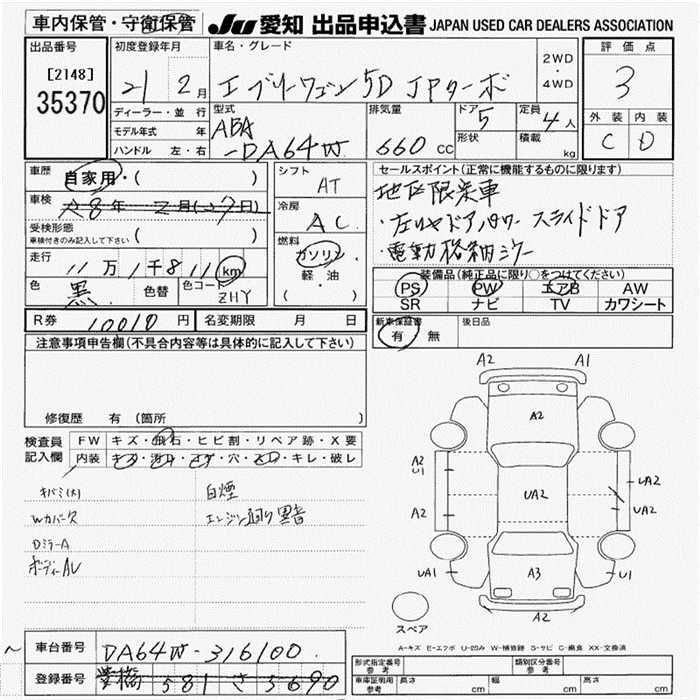 車内保管・守衛保管
JU 愛知 出品申込書 JAPAN USED CAR DEALERS ASSOCIATION
出品番号
[2148]
35370
初度登録年月
21 2月
車名・グレード
エブリーワゴン 5D JPターボ
2WD
・
4WD
評価点
3
外装 内装
C D
ディーラー・並行
モデル年式 年
ハンドル 左・右
型式
ABA
-DA64W
排気量
660 CC
ドア
5
形状
定員
4人
積載
kg
車歴
自家用・( )
車検
28年 2月( 7日)
受検形態
車検付きのみ記入して下さい ( )
走行
11万1千811km
色
黒
色替
色コード
ZHY
シフト
AT
冷房
AC
燃料
ガソリン
軽・油
( )
セールスポイント(正常に機能するものに限ります)
地区限定車
・左リヤドアパワースライドドア
・電動格納ミラー
装備品(純正品に限り○をつけてください)
PS PW エアB AW
SR ナビ TV カワシート
R券 10010 円 名変期限 月 日
新車保証書
有・無
後日品
注意事項申告欄(不具合内容等は具体的に記入して下さい)
修復歴 有 (箇所 )
検査員
記入欄
FW キズ・飛石・ヒビ割・リペア跡・X要
内装 キズ・汚れ・コゲ・穴・スレ・キレ・破レ
キバミ(大)
Wカバーク
DミラーA
ボディーAU
白煙
エンジン回り異音
A2 A1
A2
A2
U1
A2
UA2
UA2
UA2
UA1
A3
U1
A2
スペア
A-キズ E-エクボ U-凹み W-補修跡 S-サビ C-腐食 XX-交換済
車台番号 DA64W-316100
登録番号 豊橋 581 さ 3690
形式指定番号
参考
類別区分番号
参考
車庫証明用
参考
長さ cm
幅 cm
高さ cm